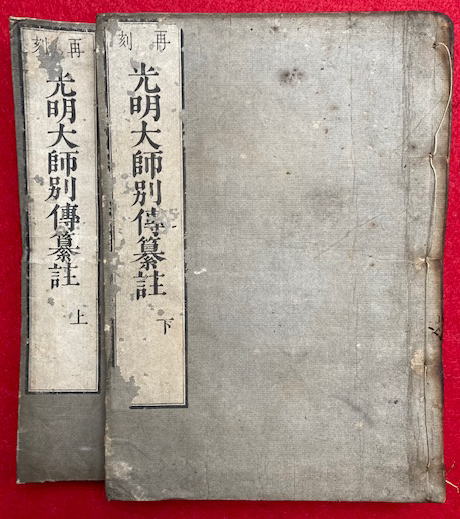 再刻
光明大師別傳纂註
下
再刻
光明大師別傳纂註
上